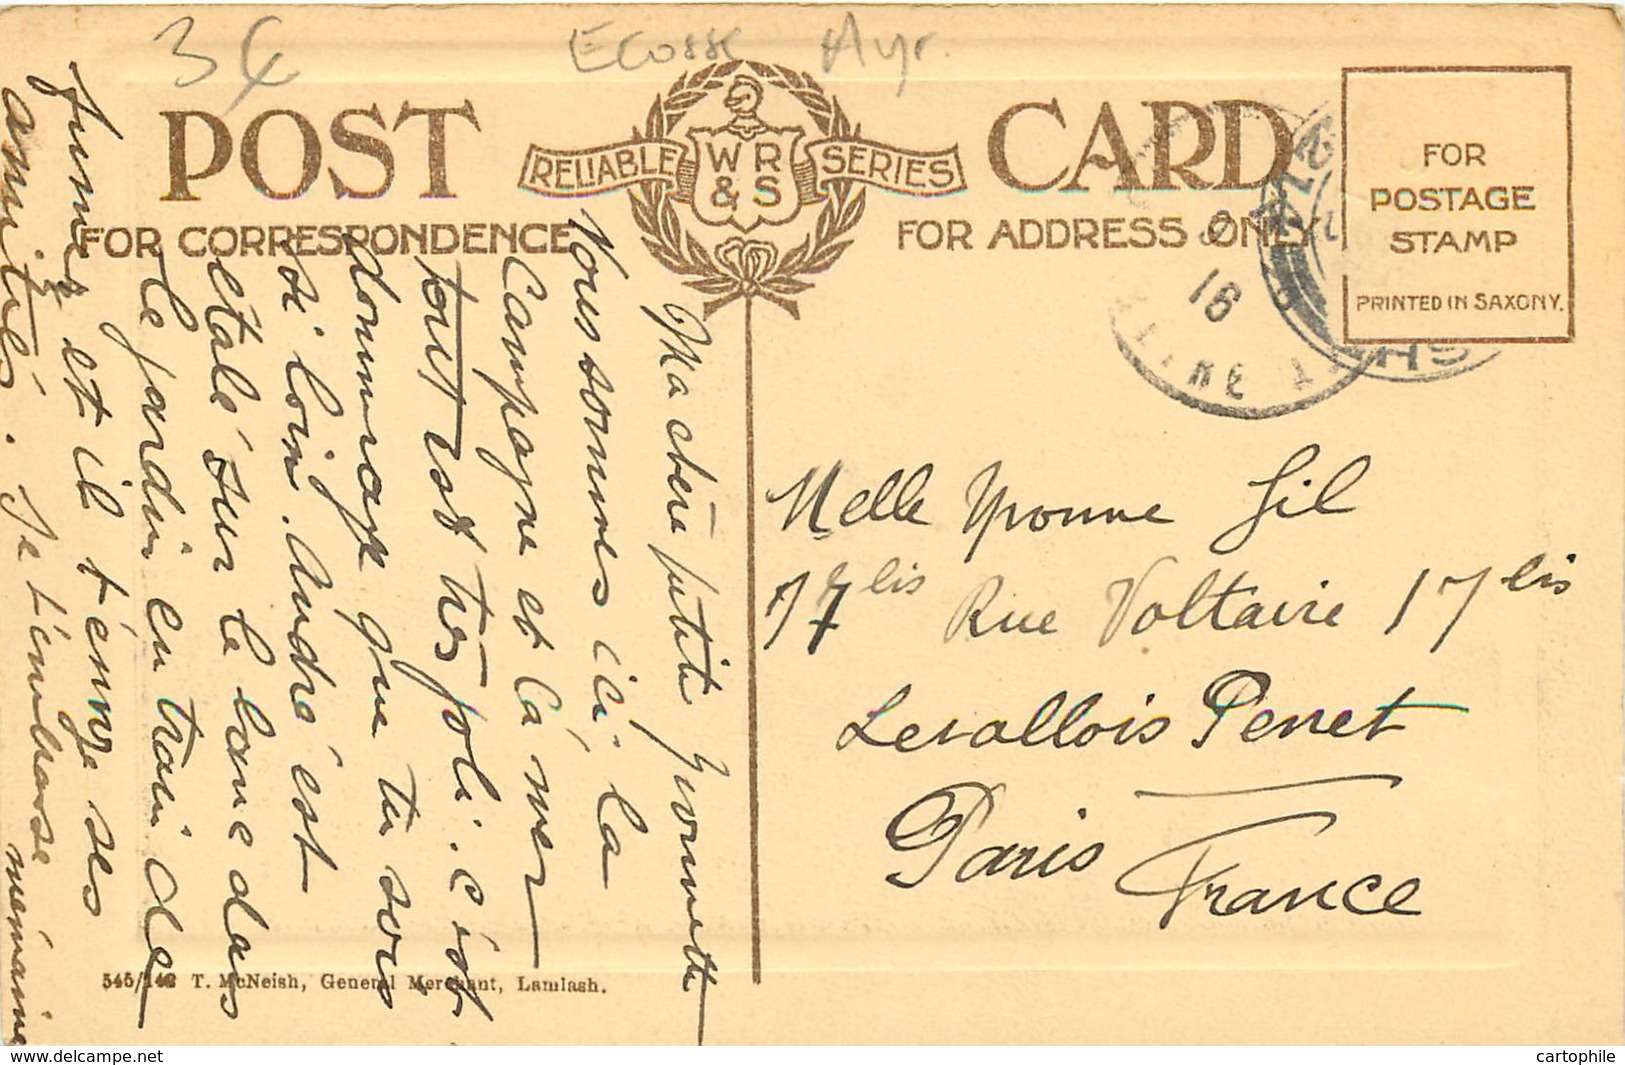 34 Ecosse Ayr.
POST CARD
RELIABLE WR & S SERIES
FOR CORRESPONDENCE
FOR ADDRESS ONLY
FOR
POSTAGE
STAMP
PRINTED IN SAXONY.
16
Ma chère petite Yvonnette
Nous sommes ici, la
Campagne et la mer
tout est très joli. c'est
dommage que tu sois
si loin. André est
étalé sur le banc dans
le jardin en train de
fumer et il t'envoie ses
amitiés. Je t'embrasse
mémaine
Melle Yvonne Gil
17bis Rue Voltaire 17bis
Levallois Perret
Paris
France
545/142 T. McNeish, General Merchant, Lamlash.
www.delcampe.net
cartophile